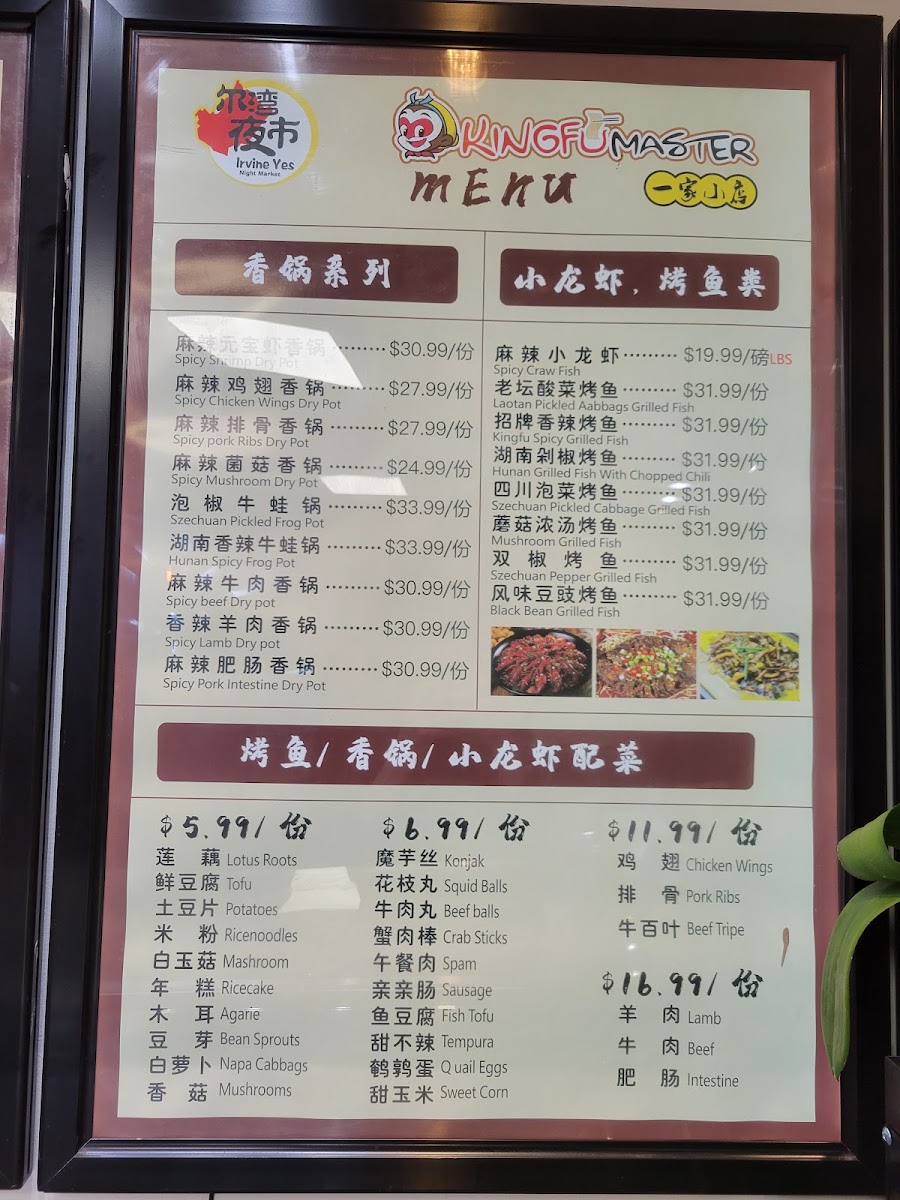 尔湾
夜市
Irvine Yes
Night Market
KINGFU MASTER
MENU
一家小店
香锅系列
麻辣元宝虾香锅 ········· $30.99/份
Spicy Shrimp Dry Pot
麻辣鸡翅香锅 ········· $27.99/份
Spicy Chicken Wings Dry Pot
麻辣排骨香锅 ········· $27.99/份
Spicy pork Ribs Dry Pot
麻辣菌菇香锅 ········· $24.99/份
Spicy Mushroom Dry Pot
泡椒牛蛙锅 ········· $33.99/份
Szechuan Pickled Frog Pot
湖南香辣牛蛙锅 ········· $33.99/份
Hunan Spicy Frog Pot
麻辣牛肉香锅 ········· $30.99/份
Spicy beef Dry pot
香辣羊肉香锅 ········· $30.99/份
Spicy Lamb Dry pot
麻辣肥肠香锅 ········· $30.99/份
Spicy Pork Intestine Dry Pot
小龙虾，烤鱼类
麻辣小龙虾 ········· $19.99/磅LBS
Spicy Craw Fish
老坛酸菜烤鱼 ········· $31.99/份
Laotan Pickled Aabbags Grilled Fish
招牌香辣烤鱼 ········· $31.99/份
Kingfu Spicy Grilled Fish
湖南剁椒烤鱼 ········· $31.99/份
Hunan Grilled Fish With Chopped Chili
四川泡菜烤鱼 ········· $31.99/份
Szechuan Pickled Cabbage Grilled Fish
蘑菇浓汤烤鱼 ········· $31.99/份
Mushroom Grilled Fish
双椒烤鱼 ········· $31.99/份
Szechuan Pepper Grilled Fish
风味豆豉烤鱼 ········· $31.99/份
Black Bean Grilled Fish
烤鱼/ 香锅/ 小龙虾配菜
$5.99/ 份
莲藕 Lotus Roots
鲜豆腐 Tofu
土豆片 Potatoes
米粉 Ricenoodles
白玉菇 Mashroom
年糕 Ricecake
木耳 Agarie
豆芽 Bean Sprouts
白萝卜 Napa Cabbags
香菇 Mushrooms
$6.99/ 份
魔芋丝 Konjak
花枝丸 Squid Balls
牛肉丸 Beef balls
蟹肉棒 Crab Sticks
午餐肉 Spam
亲亲肠 Sausage
鱼豆腐 Fish Tofu
甜不辣 Tempura
鹌鹑蛋 Q uail Eggs
甜玉米 Sweet Corn
$11.99/ 份
鸡翅 Chicken Wings
排骨 Pork Ribs
牛百叶 Beef Tripe
$16.99/ 份
羊肉 Lamb
牛肉 Beef
肥肠 Intestine